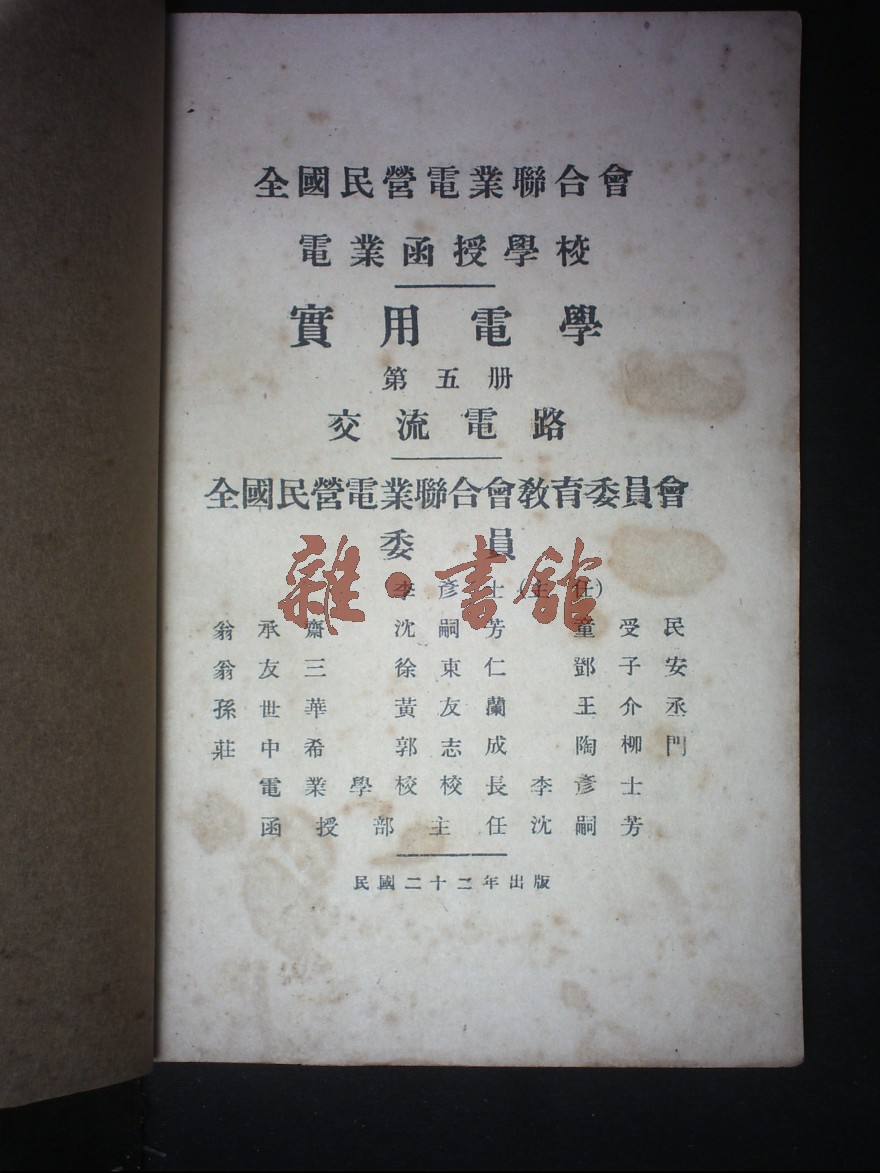 全國民營電業聯合會
電業函授學校
實用電學
第五册
交流電路
全國民營電業聯合會教育委員會
委員
李彥士(主任)
翁承齋 沈嗣芳 童受民
翁友三 徐束仁 鄧子安
孫世華 黃友蘭 王介丞
莊中希 郭志成 陶柳門
電業學校校長李彥士
函授部主任沈嗣芳
民國二十二年出版
雜·書館